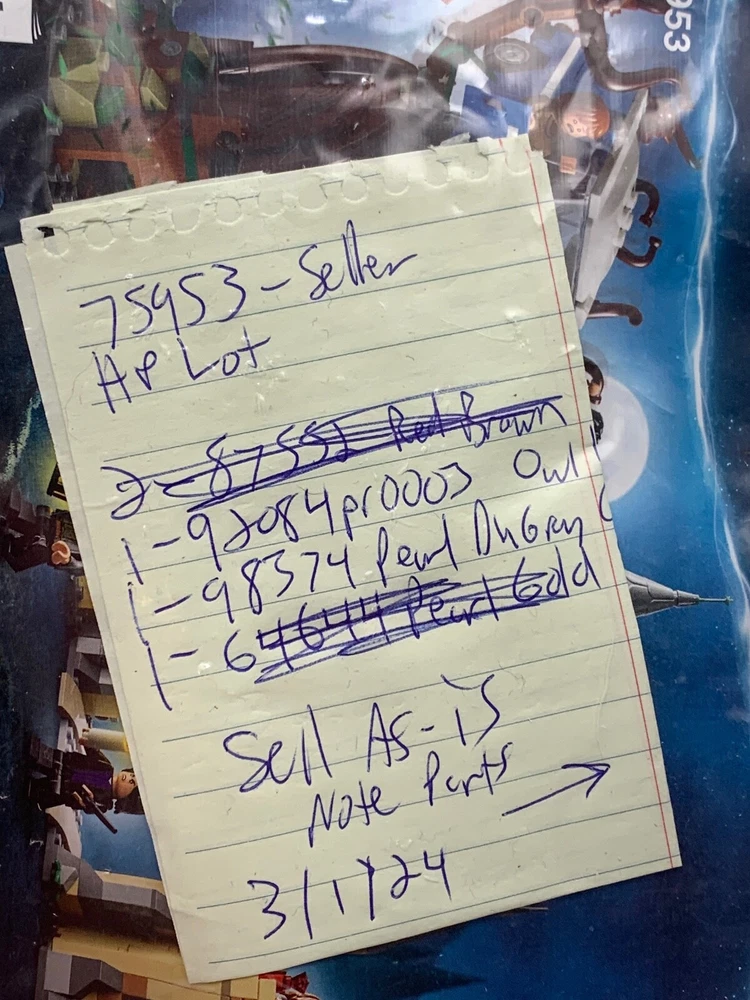 953
75953 - Seller
HP Lot
2 - 87552 Red Brown
1 - 92084pr0003 Owl
1 - 98374 Pearl DkGrey
1 - 64644 Pearl Gold
Sell As-is
Note Parts →
3/1/24